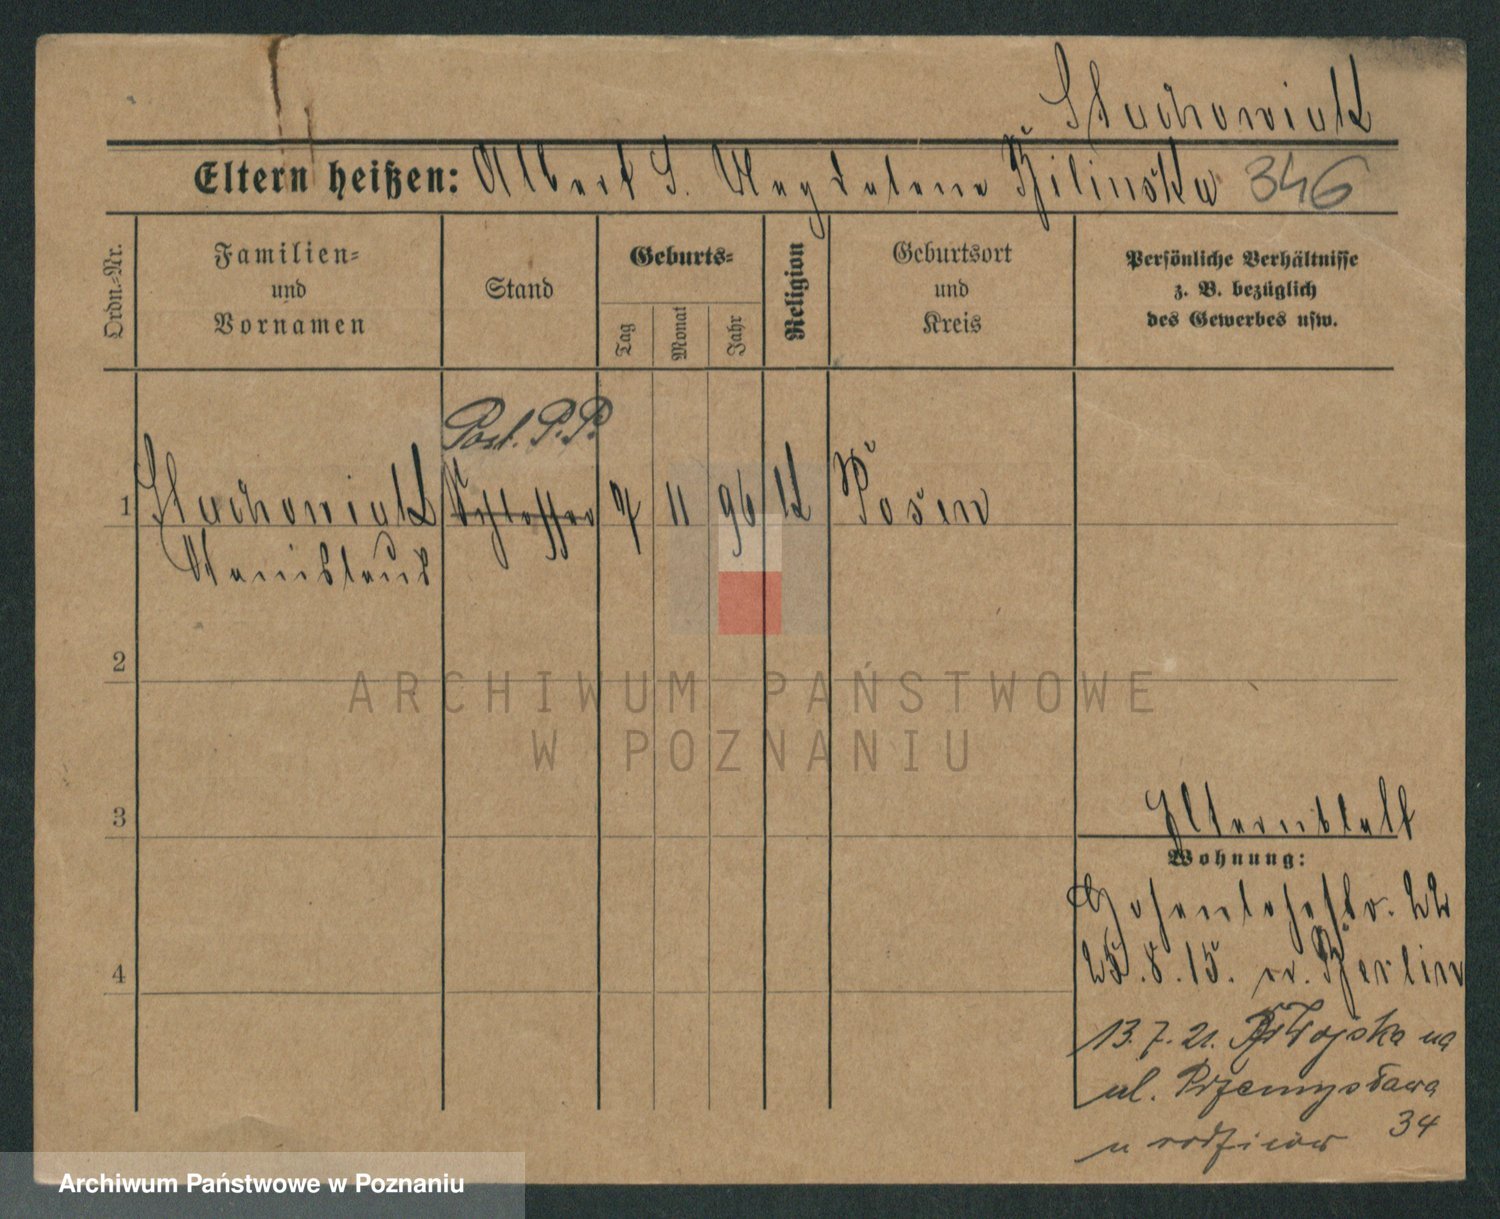 Stachowiak
Eltern heißen: Albert S. Magdalena Bilinska 346
Ordn.=Nr.
Familien=
und
Vornamen
Stand
Geburts=
Tag
Monat
Jahr
Religion
Geburtsort
und
Kreis
Persönliche Verhältnisse
z. B. bezüglich
des Gewerbes usw.
Post. P.P.
1 Stachowiak Schlosser 7 11 96 K Posen
Stanislaus
2
ARCHIWUM PAŃSTWOWE
W POZNANIU
3
Elternblatt
Wohnung:
Hohenlohestr. 22
4
25.8.15. v. Berlin
13.7.21. Wojska na
ul. Przemysława
34
u rodziców
Archiwum Państwowe w Poznaniu